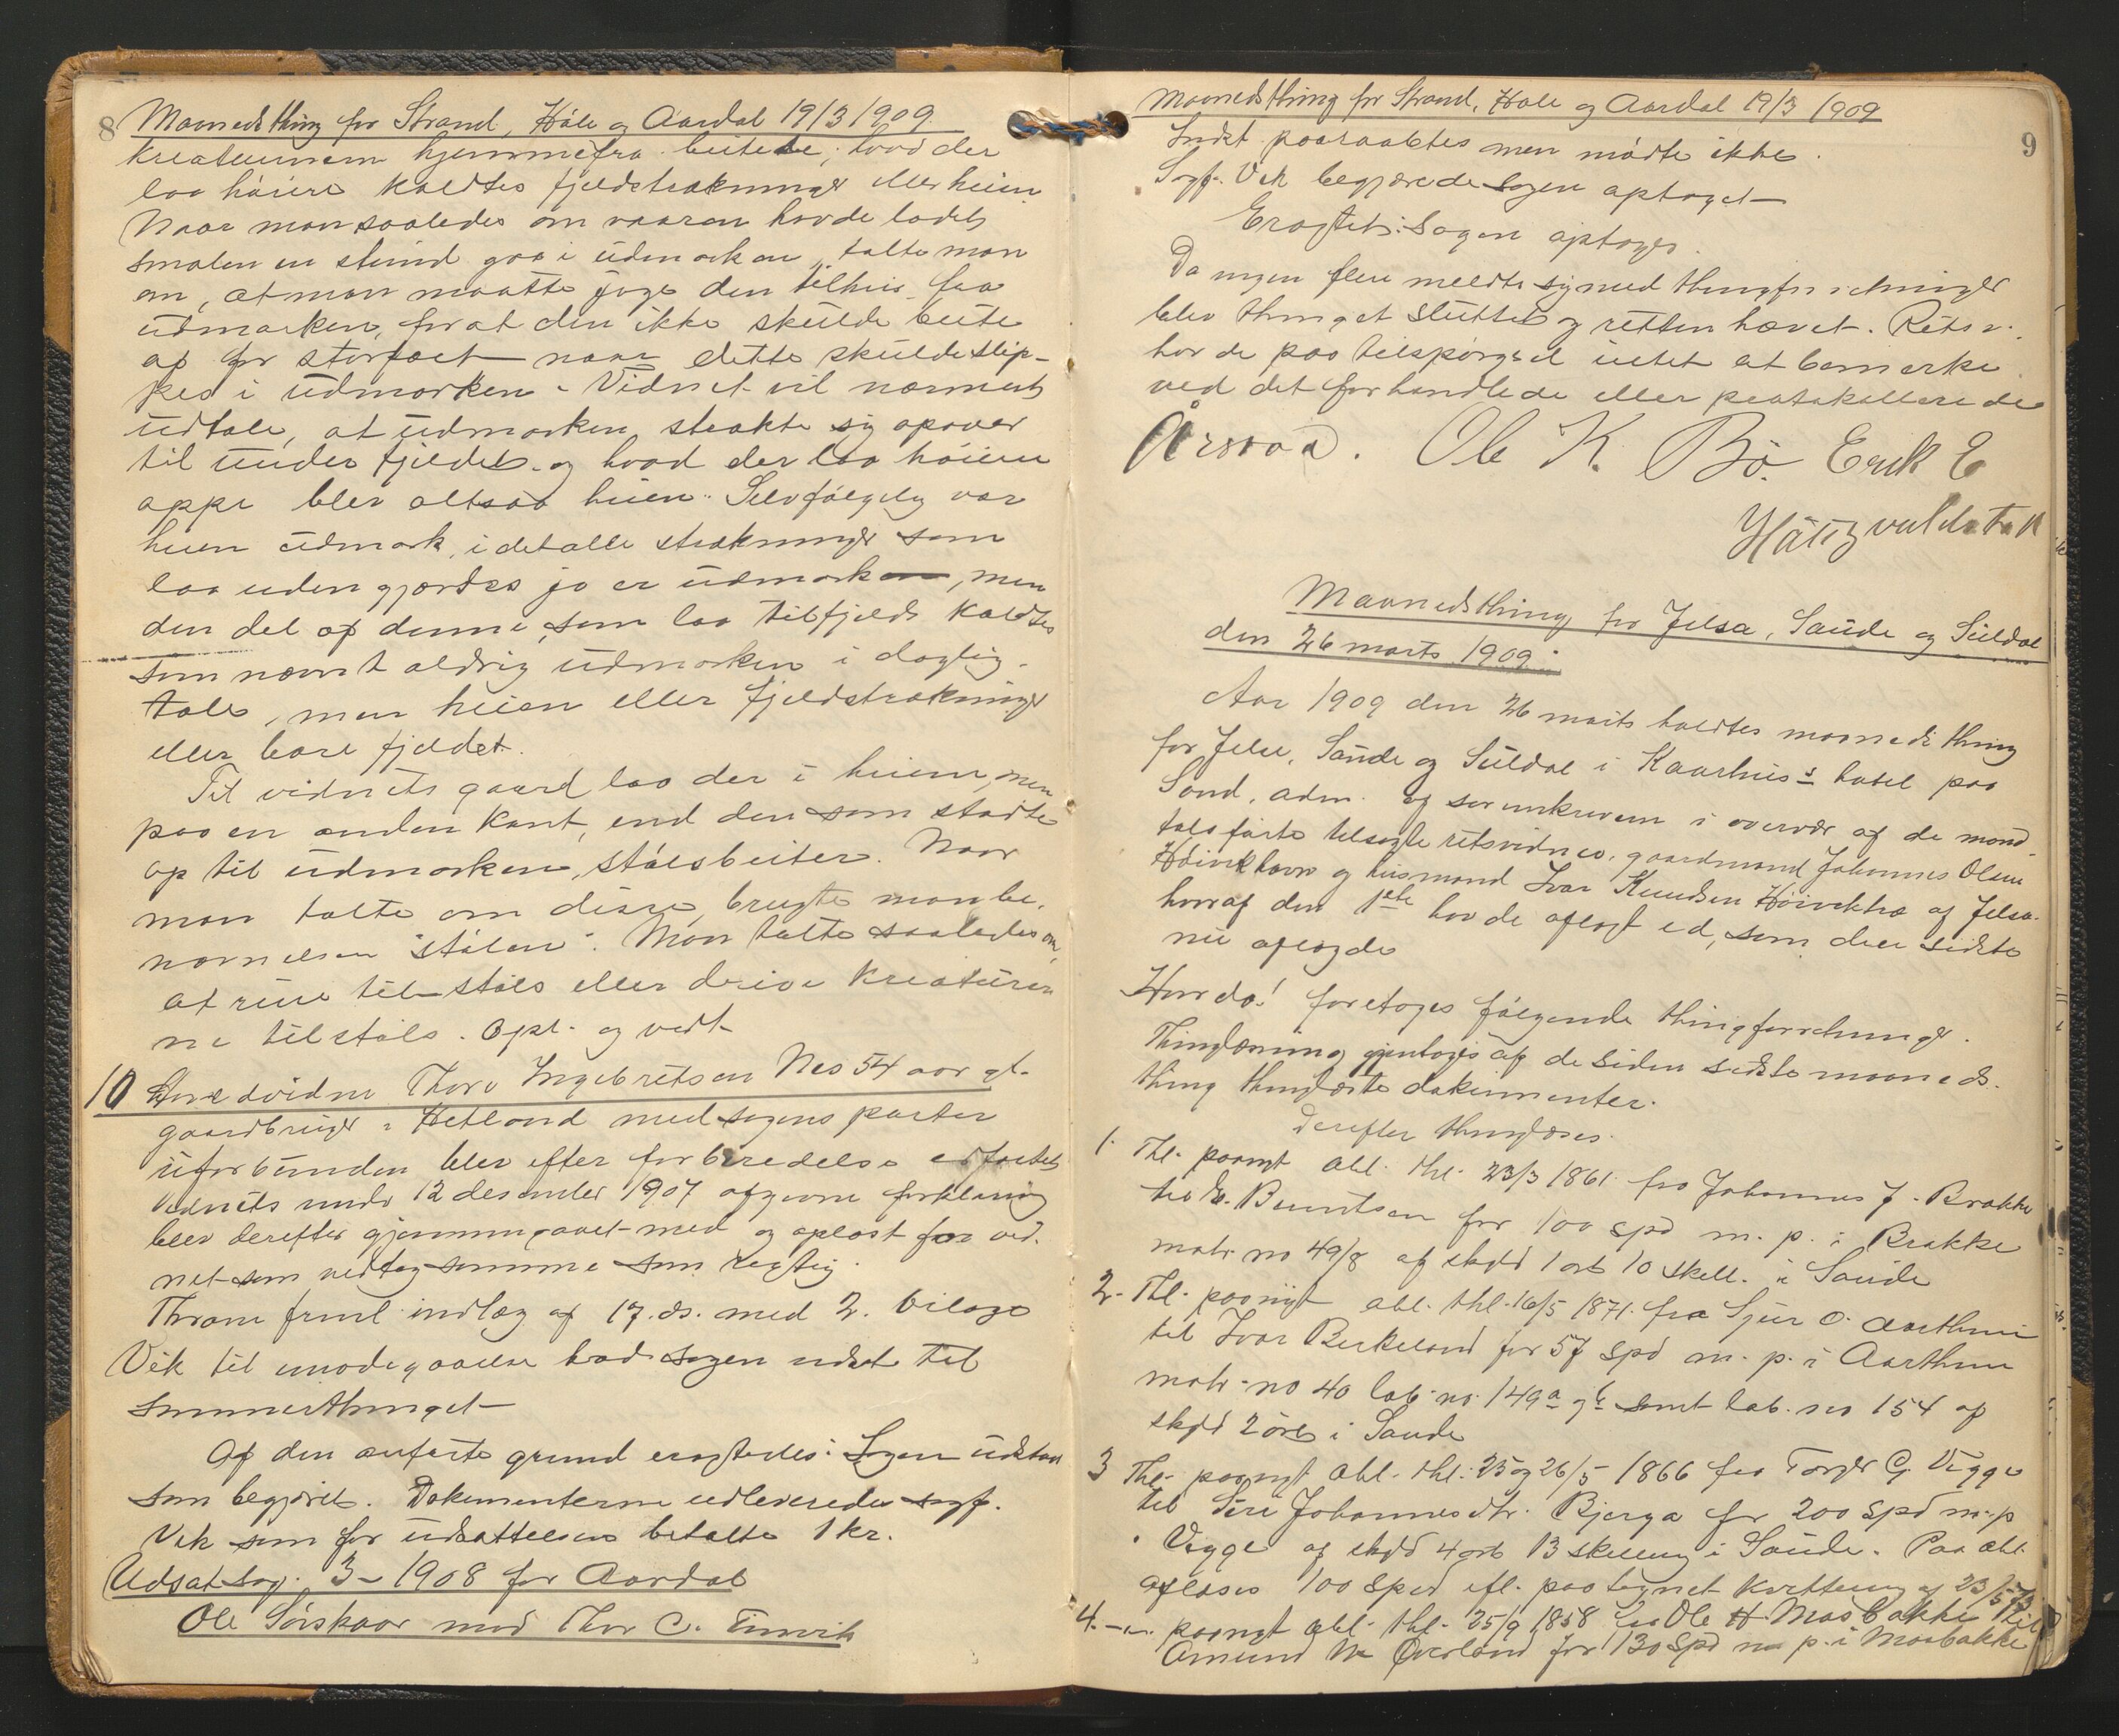 8
Maanedsthing for Strand, Høle og Aardal 19/3 1909.
kreaturnem hjemmefra beitede; hvad der
laa høiere kaldtes fjeldstrækninger eller heien
Naar man saaledes om vaaren havde ladet
smalen en stund gaa i udmarken, talte man
om, at man maatte jage den tilheis fra
udmarken, for at den ikke skulde beite
af for storfæet naar dette skulde slip-
pes i udmarken. Vidnet vil nærmest
udtale, at udmarken strakte sig opover
til under fjeldet og hvad der laa høiere
oppe blev altsaa heien. Selvfølgelig var
heien udmark, idet alle strækninger som
laa uden gjærdes jo er udmarken, men
den del af denne, som laa tilfjelds kaldtes
som nævnt aldrig udmarken i daglig-
tale, men heien eller fjeldstrækninger
eller bare fjeldet.
Til vidnets gaard laa der i heien, men
paa en anden kant, end den som stødte
op til udmarken, stølsbeiter. Naar
man talte om disse, brugte man be-
nævnelsen "stølen". Man talte saaledes om,
at reise til støls eller drive kreaturer
ne til støls. Opl. og vedt.
10 Hovedvidne Thore Ingebretsen Nes 54 aar gl.
gaardbruger i Hetland med sagens parter
uforbunden blev efter forberedelse edfæstet
Vidnets under 12 desember 1907 afgivne forklaring
blev derefter gjennemgaaet med og oplæst for vid-
net som vedtog samme som rigtig.
Thrane freml. indlæg af 17. ds. med 2. bilage
Vik til imødegaaelse bad sagen udsat til
sommerthinget
Af den anførte grund eragtedes: Sagen udstaar
som begjæret. Dokumenterne udleveredes sagf.
Vik som for udsættelsen betalte 1 kr.
Udsat sag. 3 - 1908 for Aardal
Ole Sørskaar mod Thor C. Tunvik
9
Maanedsthing for Strand, Høle og Aardal 19/3 1909
Indst. paaraabtes men mødte ikke.
Sagf. Vik begjærede sagen optaget
Eragtet: Sagen optoges.
Da ingen flere meldte sig med thingforretninger
blev thinget sluttet og retten hævet. Retsv.
havde paa tilspørgsel intet at bemærke
ved det forhandlede eller protokollerede
Årsvoa. Ole K. Bø. Erik E
Håtzvuldstak
Maanedsthing for Jelsa, Saude og Suldal
den 26 marts 1909.
Aar 1909 den 26 marts holdtes maanedsthing
for Jelse, Saude og Suldal i Kaarhus's hotel paa
Sand, adm. af sorenskriveren i overvær af de mand-
talsførte tilsagte retsvidner, gaardmand Johannes Olsen
Høivikhavn og husmand Ivar Knudsen Høiviktræ af Jelse
hvoraf den 1ste havde aflagt ed, som den sidste
nu aflagde
Hvorda! foretoges følgende thingforretninger.
Thinglæsning gjentoges af de siden sidste maaneds-
thing thinglæste dokumenter.
Derefter thinglæses:
1. Thl. paanyt obl. thl. 23/3 1861 fra Johannes J. Brakke
til B. Berentsen for 100 spd m. p. i Brakke
matr. no 49/8 af skyld 1 ort 10 skell. i Saude
2. Thl. paanyt obl. thl. 16/5 1871. fra Sjur O. Aarthun
til Ivar Birkeland for 57 spd m. p. i Aarthun
matr. no 40 løb. no. 149a og b samt løb. no 154 af
skyld 2 øre i Saude
3 Thl. paanyt obl. thl. 25 og 26/5 1866 fra Torger G. Vigge
til Siri Johannesdtr. Bjerga for 200 spd m. p
i Vigge af skyld 4 ort 13 skelling i Saude. Paa obl
aflæses 100 Spd ifl. paategnet kvittering af 23/5 73
4. -"- paanyt obl. thl. 25/9 1858 fra Ole H Mosbakke til
Amund M Øverland for 130 Spd m p. i Mosbakke